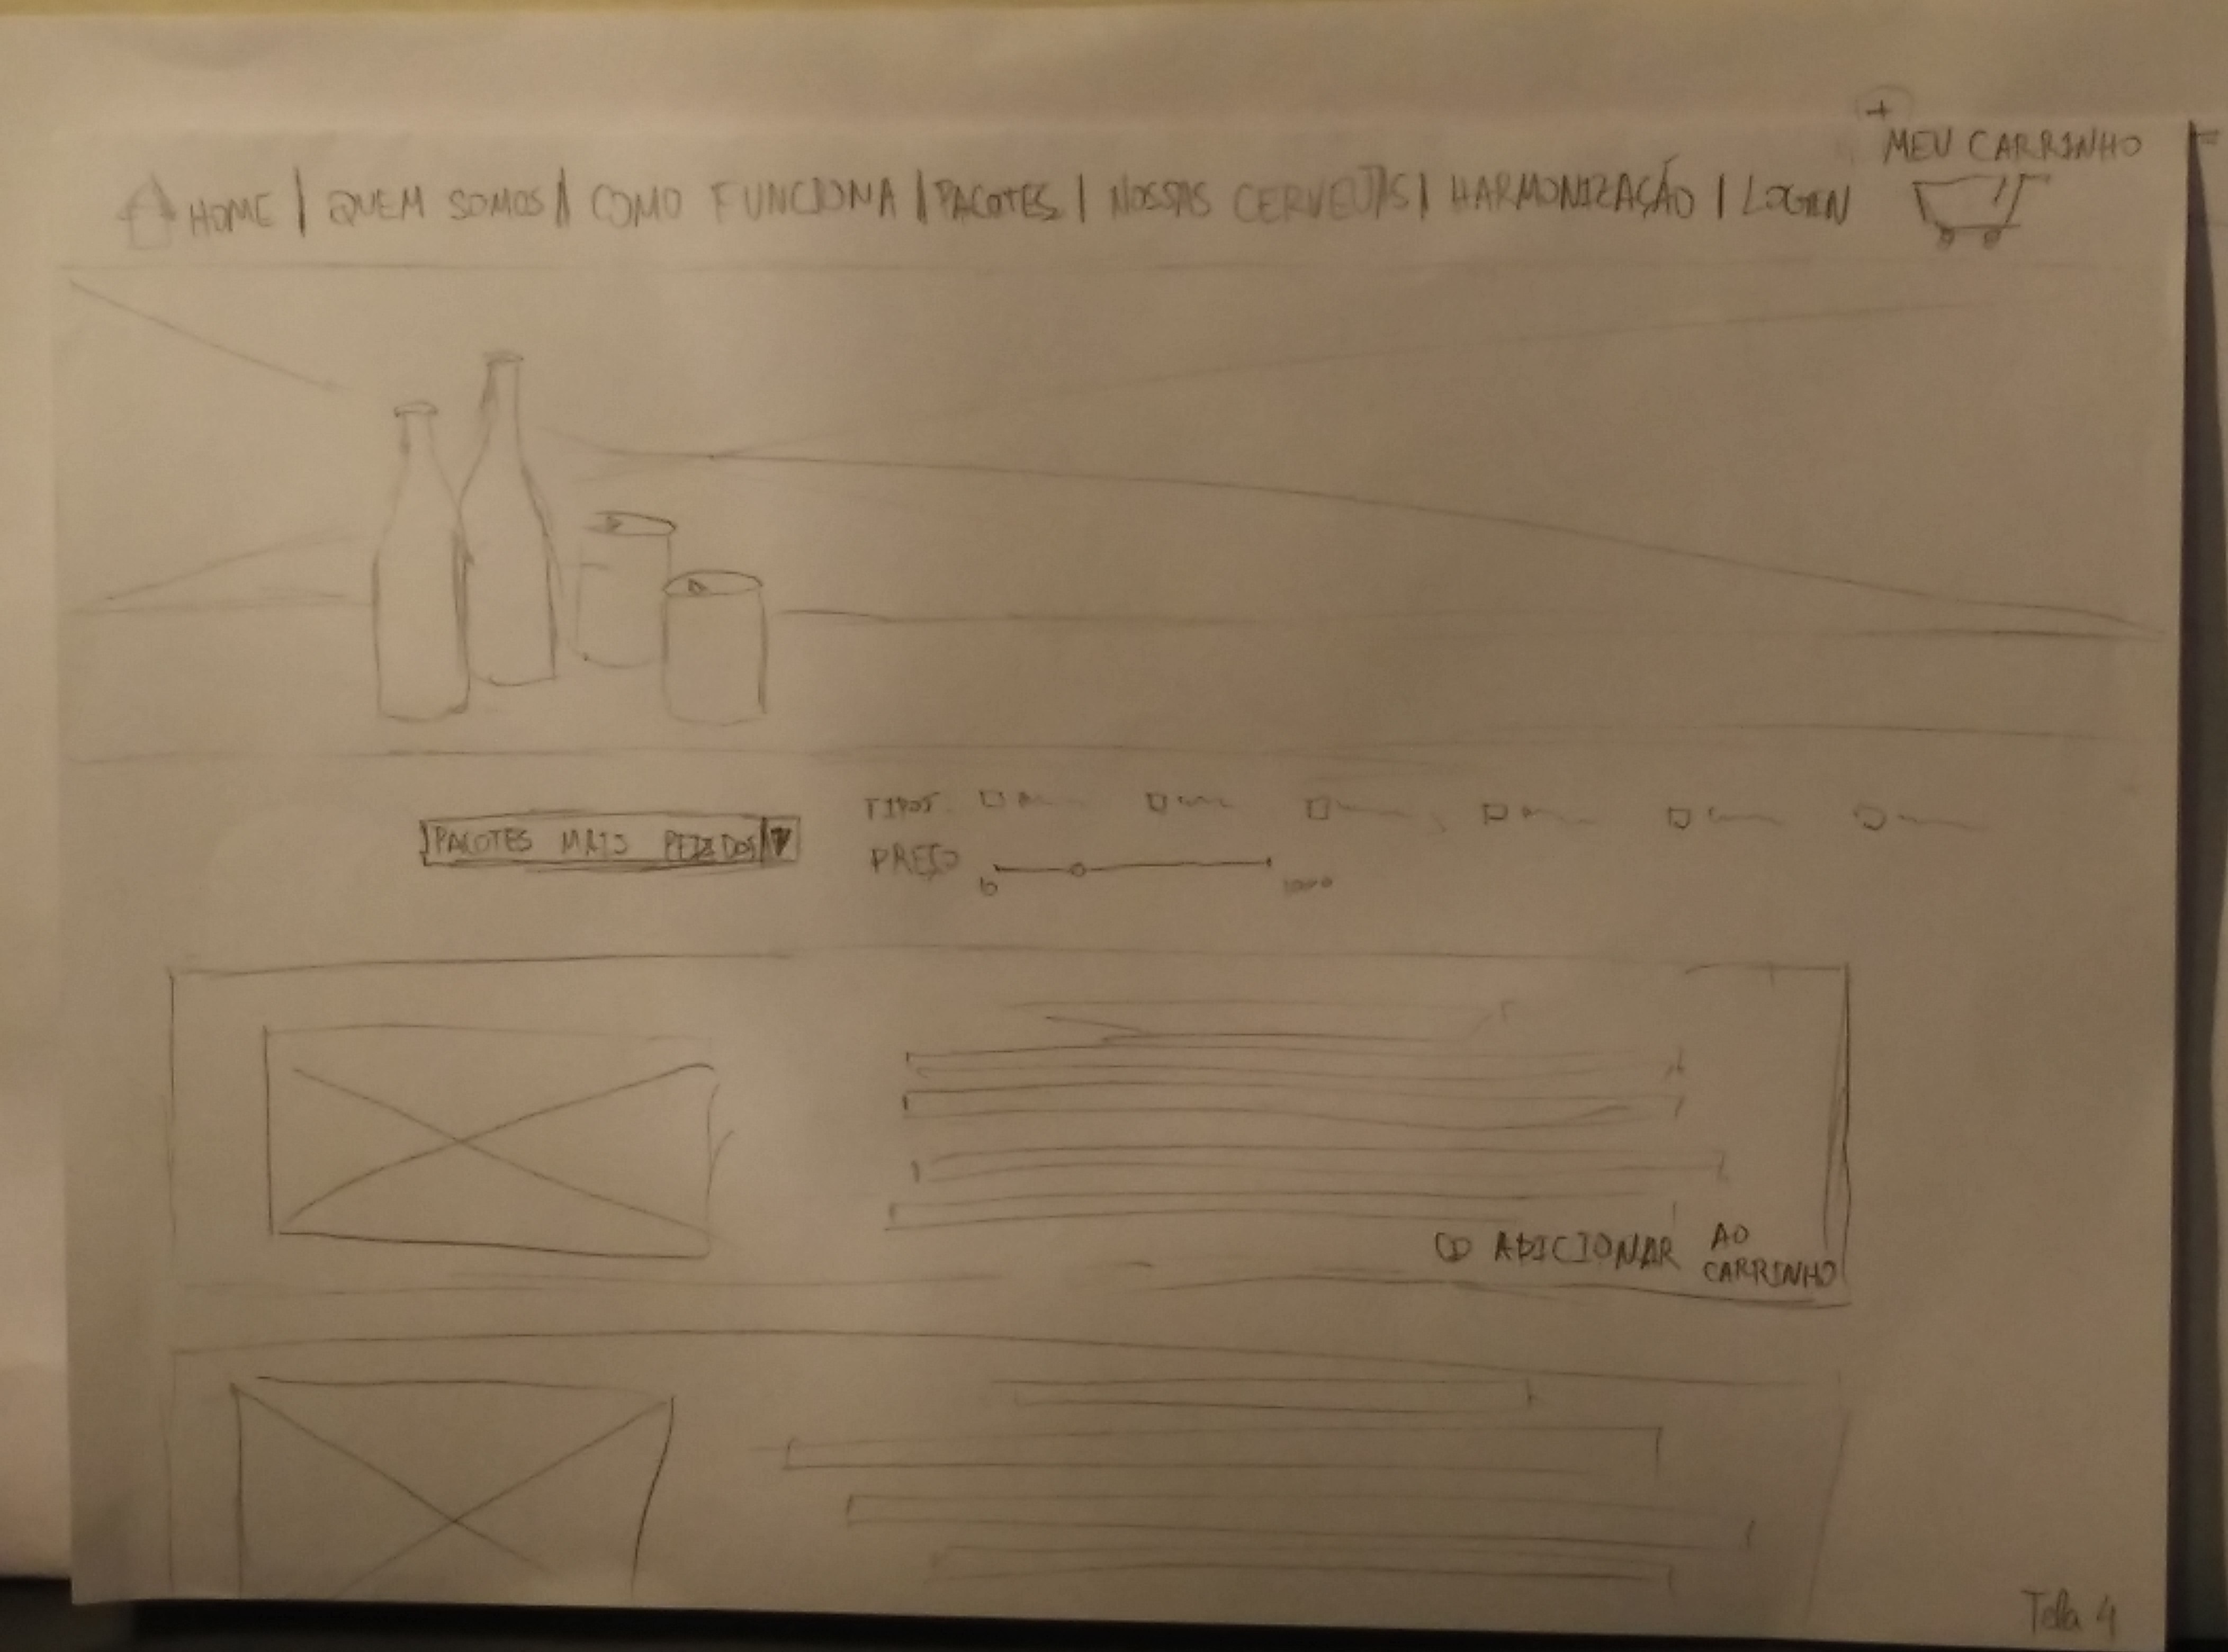 MEU CARRINHO
HOME | QUEM SOMOS | COMO FUNCIONA | PACOTES | NOSSAS CERVEJAS | HARMONIZAÇÃO | LOGIN
PACOTES MAIS PEDIDOS
TIPOS
PREÇO
ADICIONAR AO
CARRINHO
Tela 4